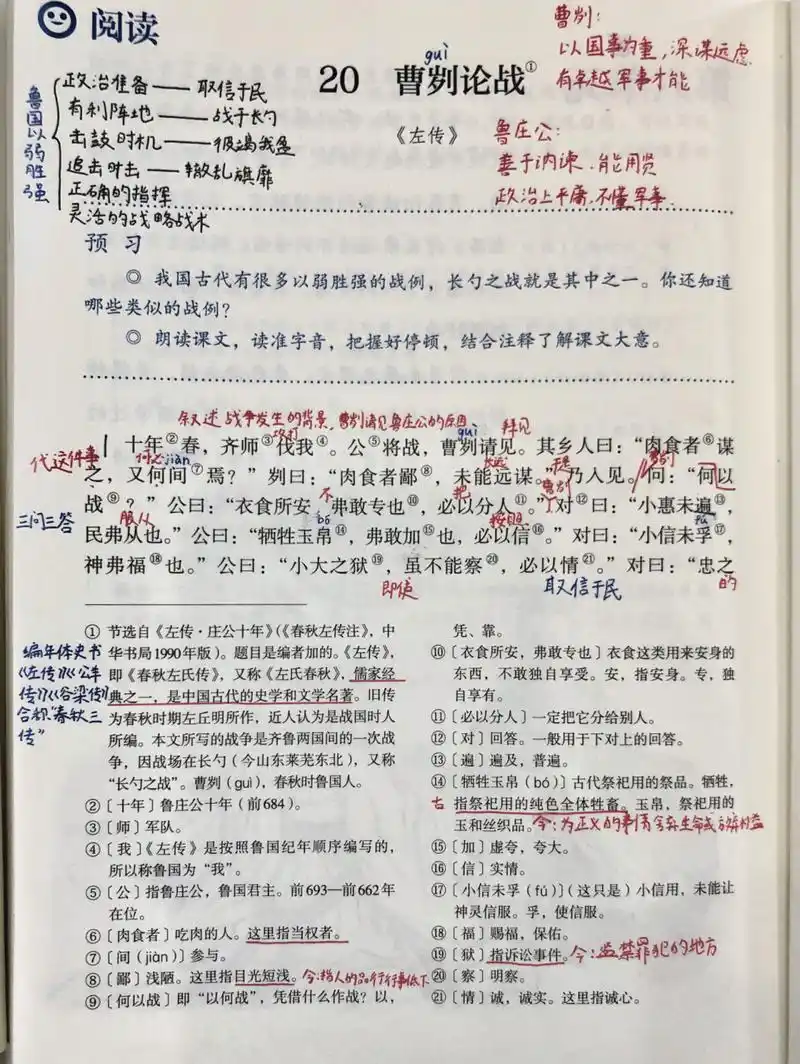 阅读
guì
20 曹刿论战①
《左传》
曹刿：
以国事为重，深谋远虑
有卓越军事才能
鲁庄公：
善于讷谏．能用贤
政治上平庸，不懂军事．
鲁国以弱胜强
政治准备——取信于民
有利阵地——战于长勺
击鼓时机——彼竭我盈
追击时击——辙乱旗靡
正确的指挥
灵活的战略战术
预 习
◎ 我国古代有很多以弱胜强的战例，长勺之战就是其中之一。你还知道
哪些类似的战例？
◎ 朗读课文，读准字音，把握好停顿，结合注释了解课文大意。
叙述战争发生的背景，曹刿请见鲁庄公的原因
攻打
guì
拜见
十年②春，齐师③伐我④。公⑤将战，曹刿请见。其乡人曰：“肉食者⑥谋
代这件事
何必
jiàn
长远
曹刿
之，又何间⑦焉？”刿曰：“肉食者鄙⑧，未能远谋。”乃入见。问：“何以
不
把
曹刿
战⑨？”公曰：“衣食所安，弗敢专也⑩，必以分人⑪。”对⑫曰：“小惠未遍⑬，
三问三答
服从
bó
按照
fú
民弗从也。”公曰：“牺牲玉帛⑭，弗敢加⑮也，必以信⑯。”对曰：“小信未孚⑰，
神弗福⑱也。”公曰：“小大之狱⑲，虽不能察⑳，必以情㉑。”对曰：“忠之
即使
取信于民
的
① 节选自《左传·庄公十年》（《春秋左传注》，中
华书局1990年版）。题目是编者加的。《左传》，
即《春秋左氏传》，又称《左氏春秋》，儒家经
典之一，是中国古代的史学和文学名著。旧传
为春秋时期左丘明所作，近人认为是战国时人
所编。本文所写的战争是齐鲁两国间的一次战
争，因战场在长勺（今山东莱芜东北），又称
“长勺之战”。曹刿（guì），春秋时鲁国人。
编年体史书
《左传》《公羊
传》《谷梁传》
合称“春秋三
传”
② 〔十年〕鲁庄公十年（前684）。
③ 〔师〕军队。
④ 〔我〕《左传》是按照鲁国纪年顺序编写的，
所以称鲁国为“我”。
⑤ 〔公〕指鲁庄公，鲁国君主。前693—前662年
在位。
⑥ 〔肉食者〕吃肉的人。这里指当权者。
⑦ 〔间（jiàn）〕参与。
⑧ 〔鄙〕浅陋。这里指目光短浅。今：指人的品行行事低下
⑨ 〔何以战〕即“以何战”，凭借什么作战？以，
凭、靠。
⑩ 〔衣食所安，弗敢专也〕衣食这类用来安身的
东西，不敢独自享受。安，指安身。专，独
自享有。
⑪ 〔必以分人〕一定把它分给别人。
⑫ 〔对〕回答。一般用于下对上的回答。
⑬ 〔遍〕遍及，普遍。
⑭ 〔牺牲玉帛（bó）〕古代祭祀用的祭品。牺牲，
古 指祭祀用的纯色全体牲畜。玉帛，祭祀用的
玉和丝织品。今：为正义的事情舍弃生命或
⑮ 〔加〕虚夸，夸大。
⑯ 〔信〕实情。
⑰ 〔小信未孚（fú）〕（这只是）小信用，未能让
神灵信服。孚，使信服。
⑱ 〔福〕赐福，保佑。
⑲ 〔狱〕指诉讼事件。今：监禁罪犯的地方
⑳ 〔察〕明察。
㉑ 〔情〕诚，诚实。这里指诚心。